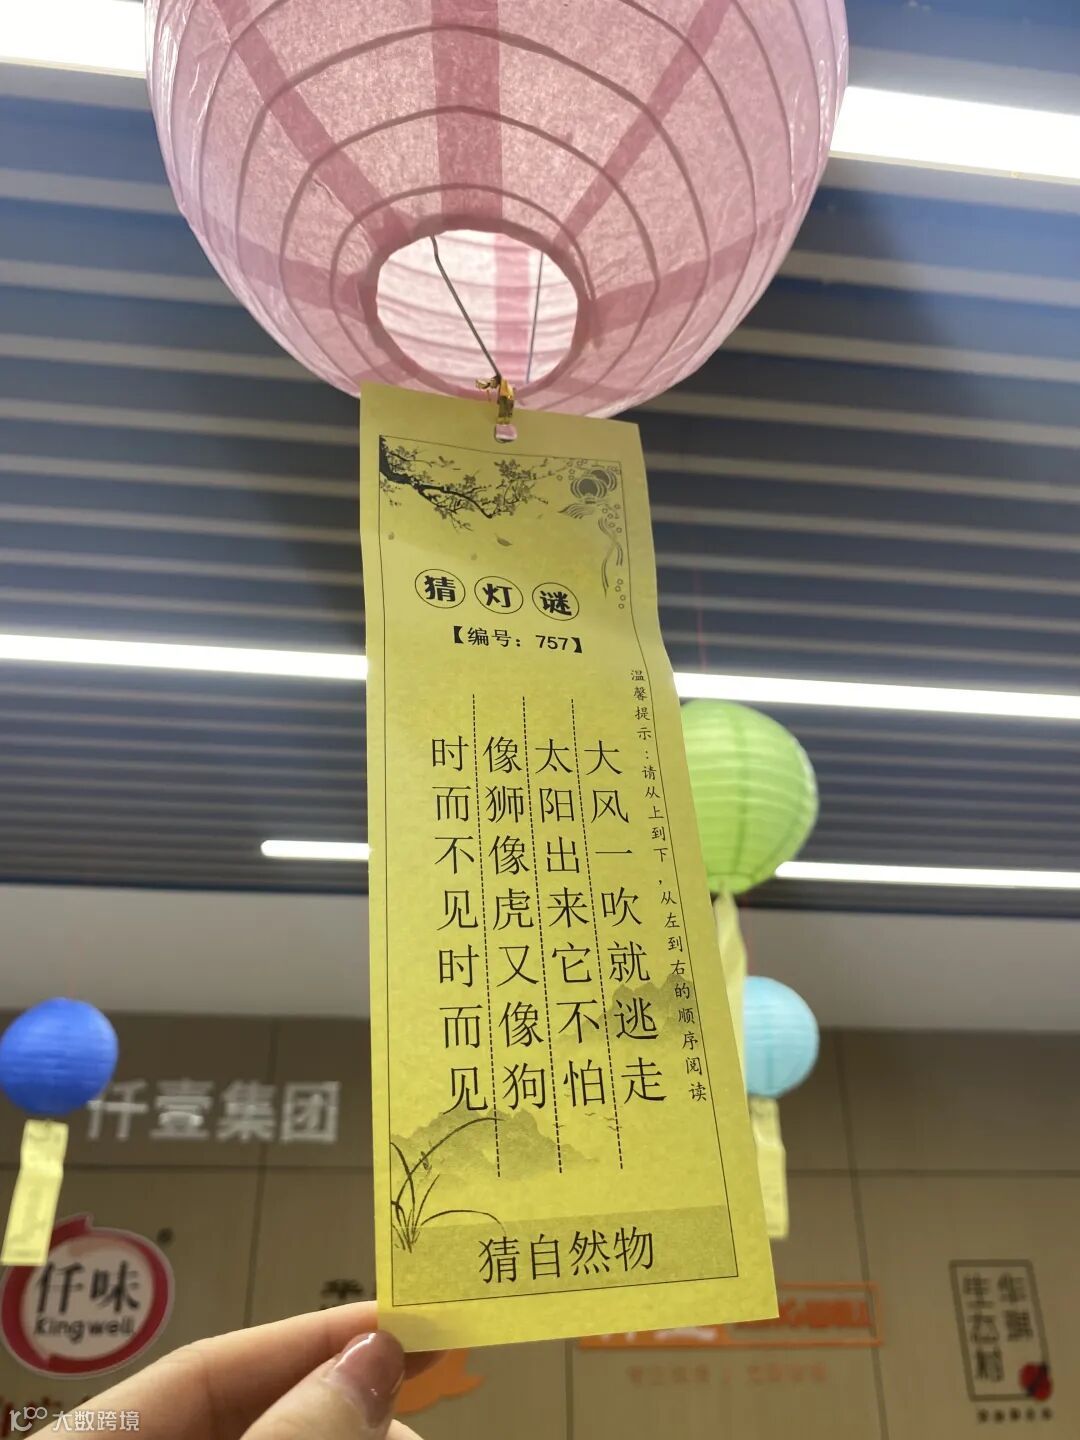 猜灯谜
【编号：757】
时而不见时而见
像狮像虎又像狗
太阳出来它不怕
大风一吹就逃走
温馨提示：请从上到下，从左到右的顺序阅读
猜自然物
仟壹集团
仟味
Kingwell
大数跨境